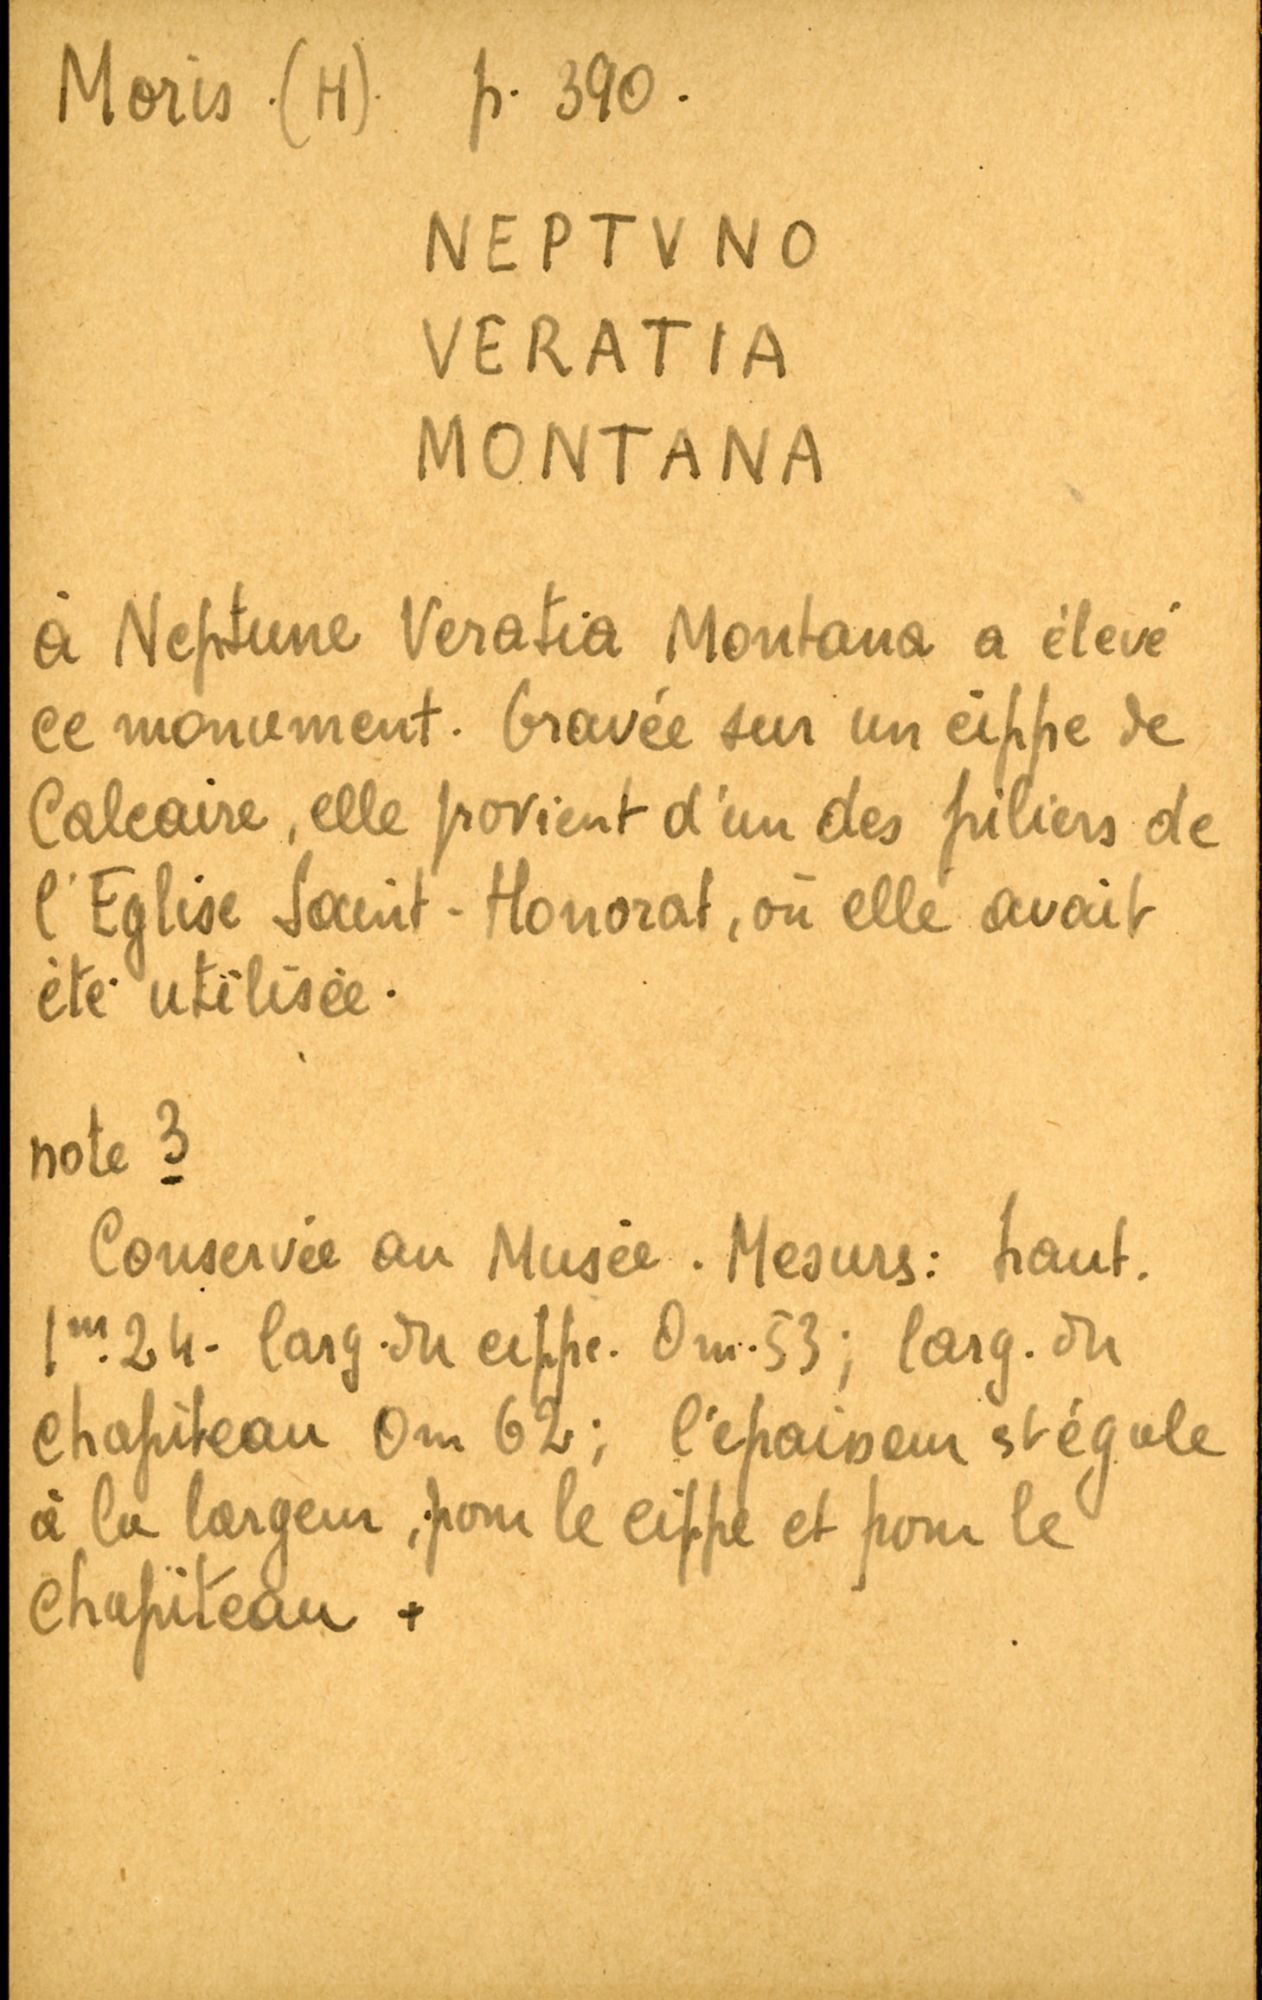 Moris (H). p. 390.
NEPTVNO
VERATIA
MONTANA
à Neptune Veratia Montana a élevé
ce monument. Gravée sur un cippe de
Calcaire, elle provient d'un des piliers de
l'Eglise Saint-Honorat, où elle avait
été utilisée.
note 3
Conservée au Musée. Mesurs: haut.
1m.24. larg. du cippe. 0m.53; larg. du
chapiteau 0m 62; l'épaisseur st égale
à la largeur, pour le cippe et pour le
chapiteau.